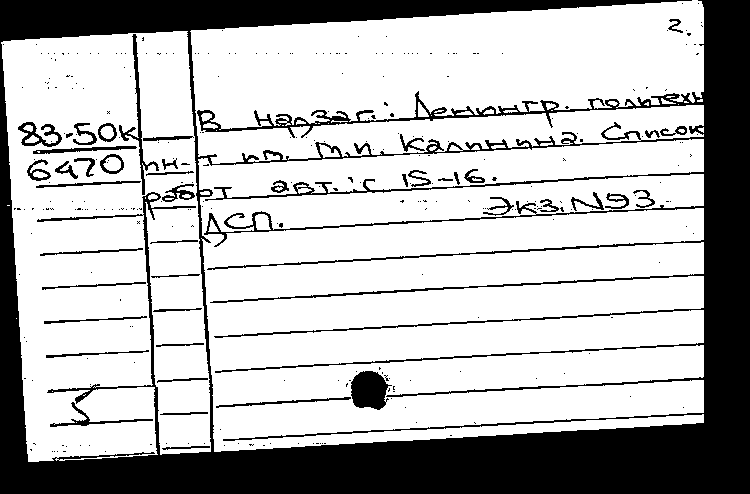 2.
В надзаг.: Ленингр. политехн
83-50к
6470
ин-т им. М.И. Калинина. Список
работ авт.: с 15-16.
ДСП. Экз. N93.
5